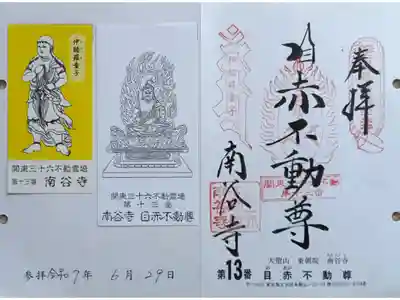 伊醯羅童子
関東三十六不動霊場
第十三番 南谷寺
関東三十六不動霊場
第十三番
南谷寺 目赤不動尊
参拝令和7年 6月29日
奉拝
目赤不動尊
南谷寺
大聖山 東朝院 南谷寺
第13番 目赤不動尊